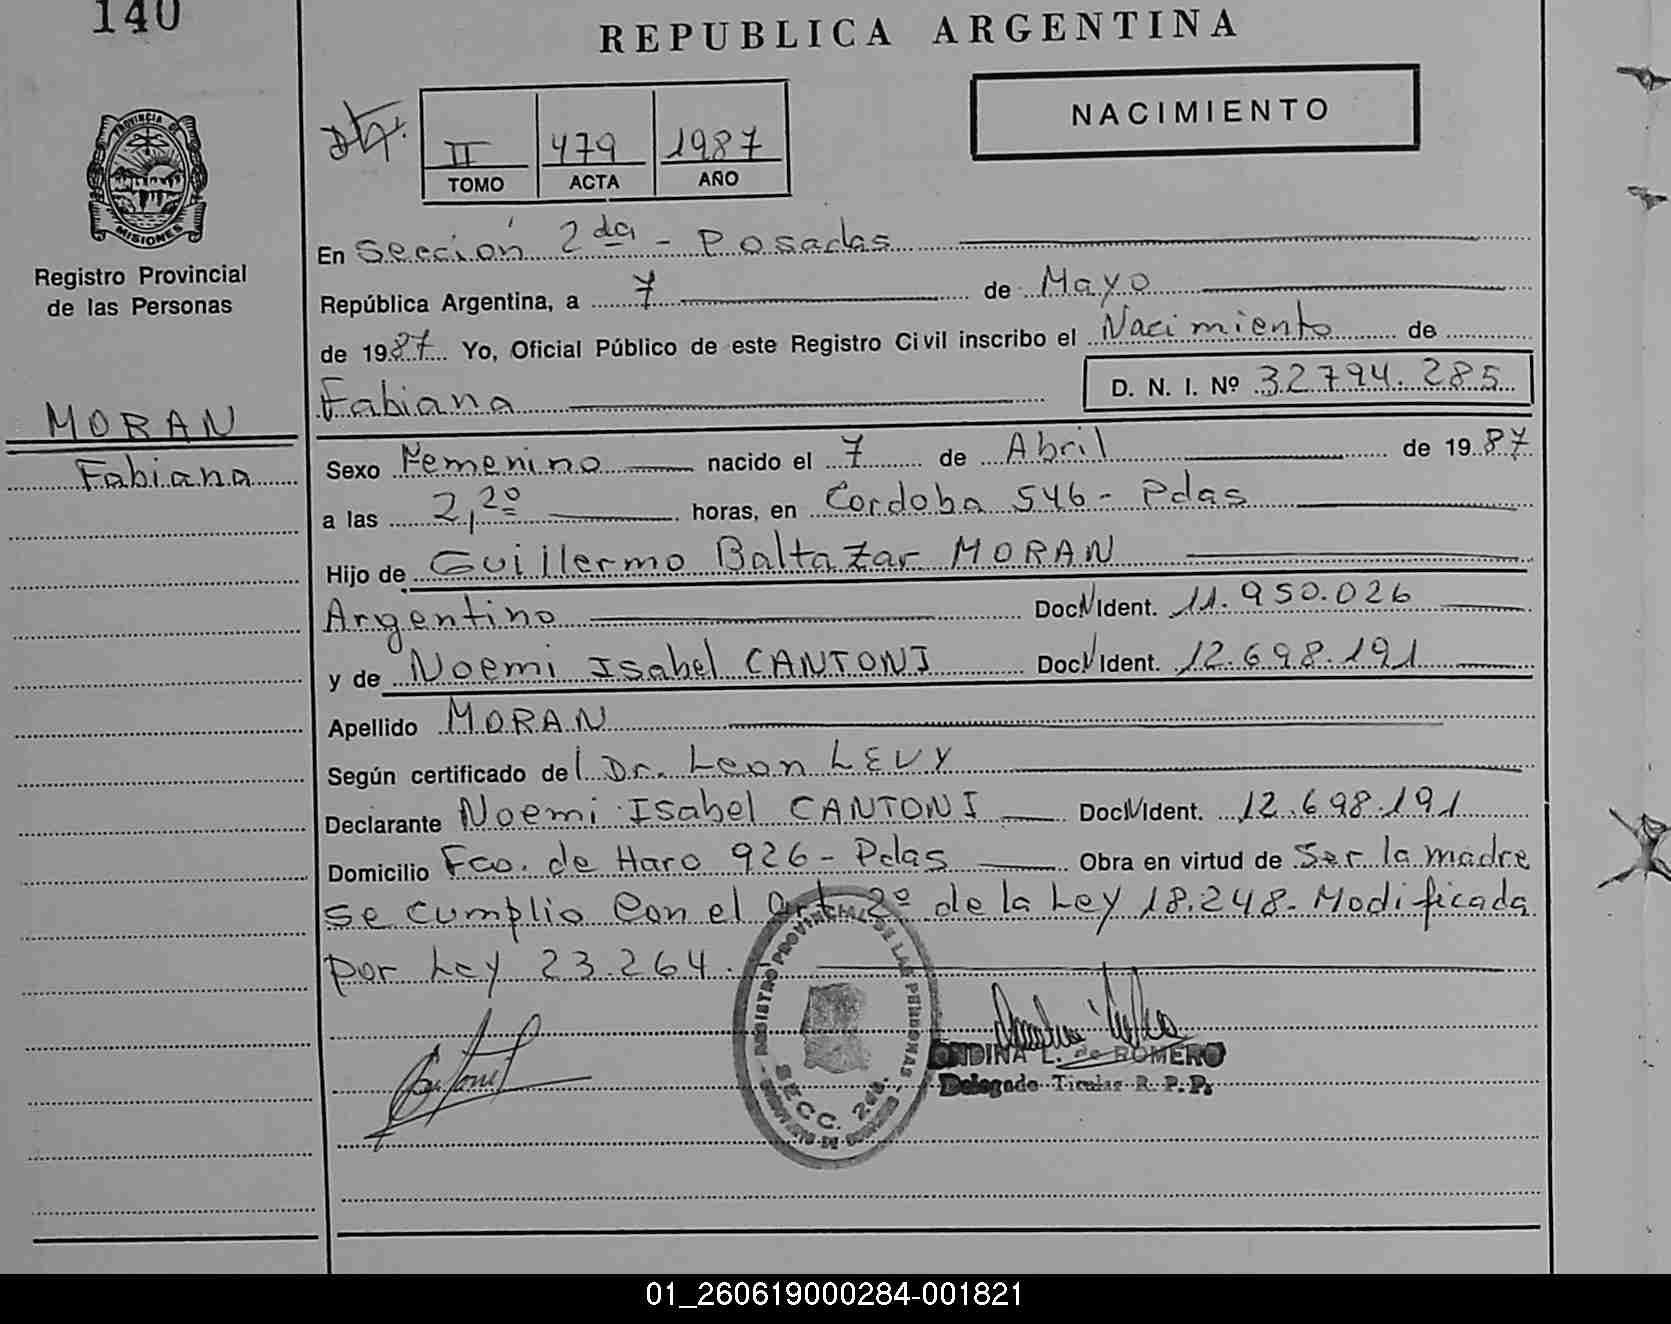 140
REPUBLICA ARGENTINA
NACIMIENTO
II 479 1987
TOMO ACTA AÑO
PROVINCIA DE
MISIONES
Registro Provincial
de las Personas
MORAN
Fabiana
En Sección 2da - Posadas
República Argentina, a 7 de Mayo
de 1987 Yo, Oficial Público de este Registro Civil inscribo el Nacimiento de
Fabiana D. N. I. Nº 32.794.285
Sexo Femenino nacido el 7 de Abril de 1987
a las 2,20 horas, en Cordoba 546 - Pdas
Hijo de Guillermo Baltazar MORAN
Argentino Doc. Ident. 11.950.026
y de Noemi Isabel CANTONI Doc. Ident. 12.698.191
Apellido MORAN
Según certificado del Dr. Leon LEVY
Declarante Noemi Isabel CANTONI Doc. Ident. 12.698.191
Domicilio Fco. de Haro 926 - Pdas Obra en virtud de Ser la madre
se cumplio con el Art. 2º de la Ley 18.248 - Modificada
por Ley 23.264.
REGISTRO PROVINCIAL DE LAS PERSONAS
SECC. 2da.
ONDINA L. de ROMERO
Delegado Titular R. P. P.
01_260619000284-001821